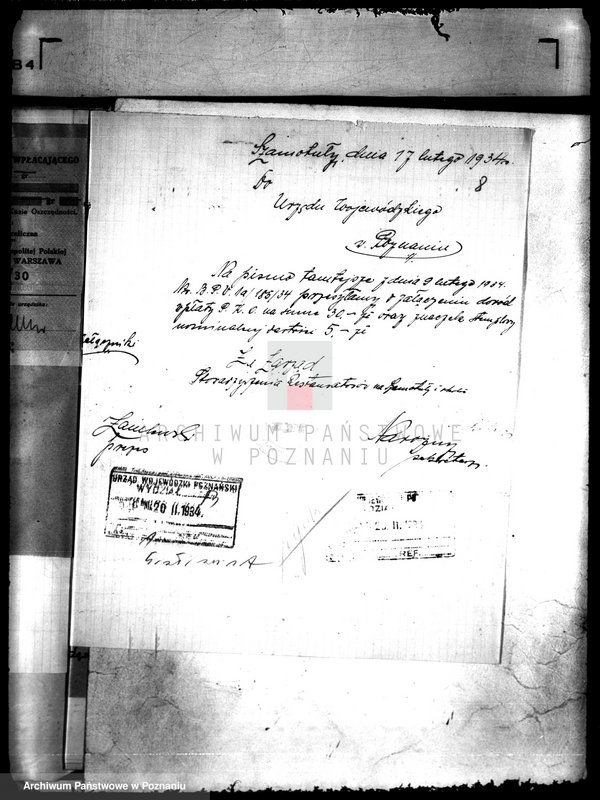 84
WPŁACAJĄCEGO
gr
Kasie Oszczędności.
WARSZAWA
30
Załączniki
Szamotuły, dnia 17 lutego 1934 r.
8
Do
Urzędu Wojewódzkiego
w Poznaniu
Na pismo tamtejsze z dnia 9 lutego 1934.
Nr. B.P.V. 1a/185/34 przesyłamy w załączeniu dowód
wpłaty P.K.O. na sumę 30,- zł oraz znaczek stemplowy
nominalnej wartości 5,- zł
Za Zarząd
Stowarzyszenia Restauratorów na Szamotuły i
prezes
sekretarz.
ARCHIWUM PAŃSTWOWE
W POZNANIU
URZĄD WOJEWÓDZKI POZNAŃSKI
WYDZIAŁ
20 II. 1934
II. 1934
REF.
Archiwum Państwowe w Poznaniu